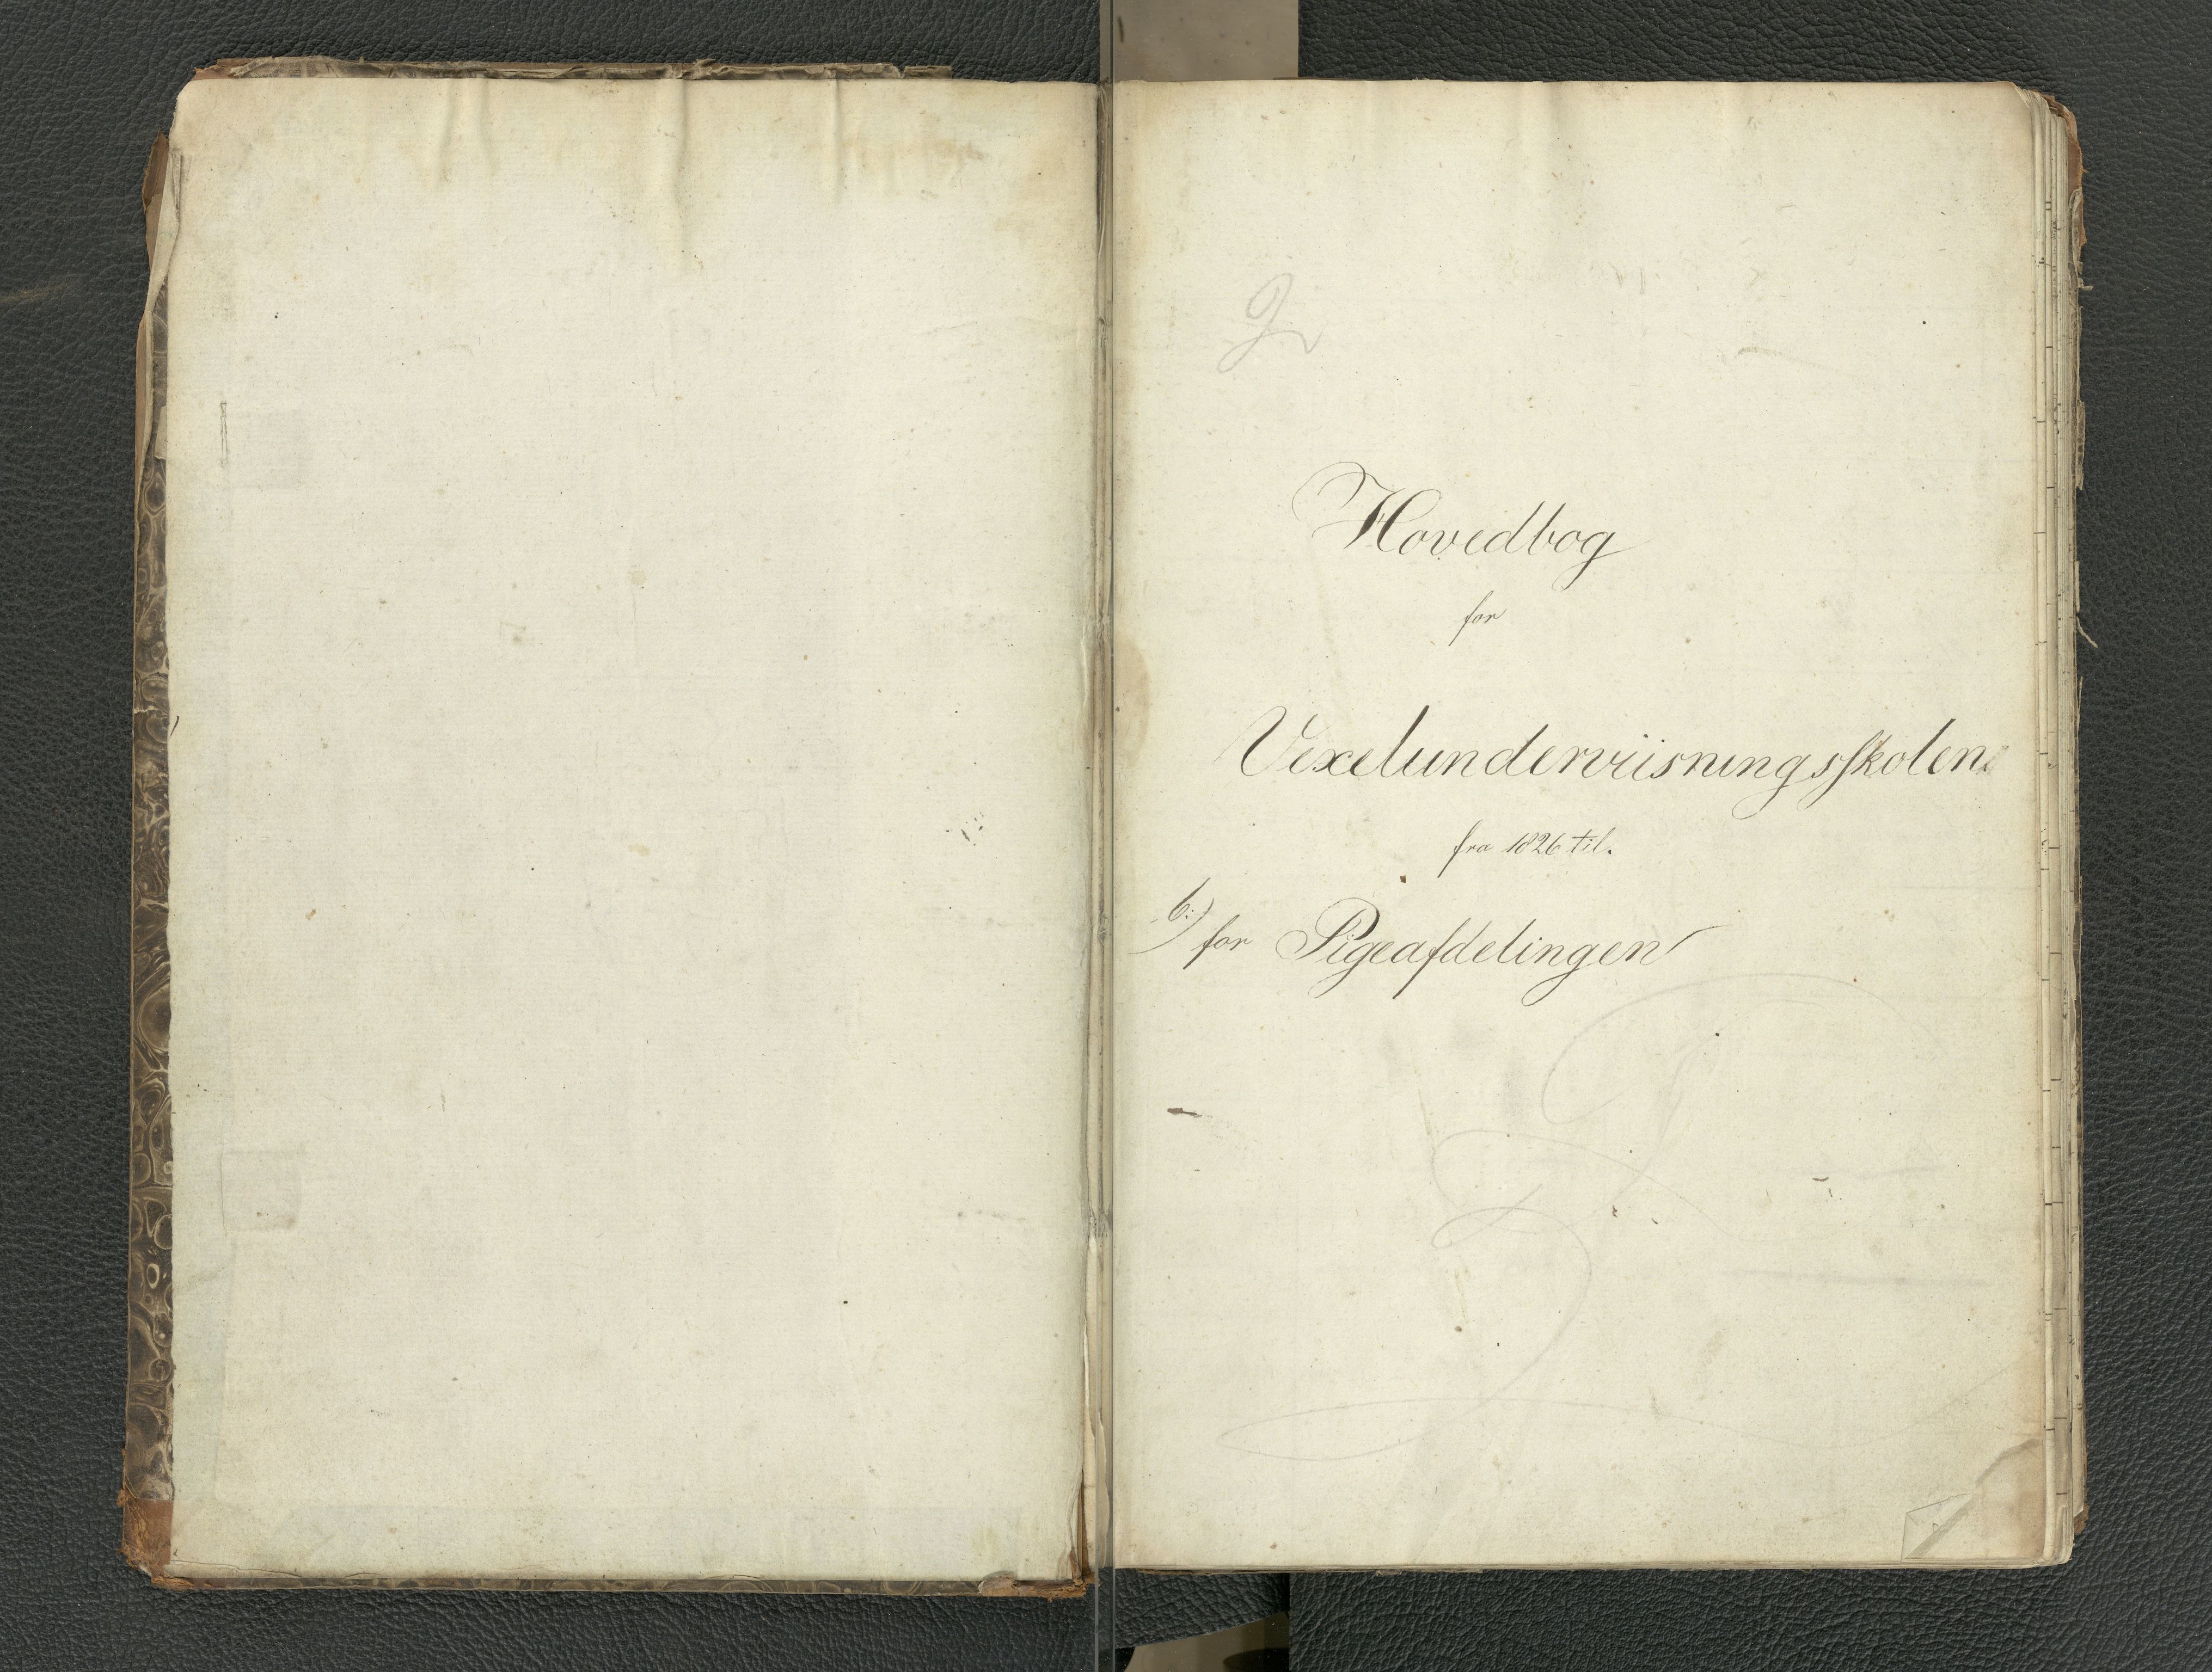 Hovedbog
for
Vexelunderviisningsskolen
fra 1826 til.
b:) for Pigeafdelingen